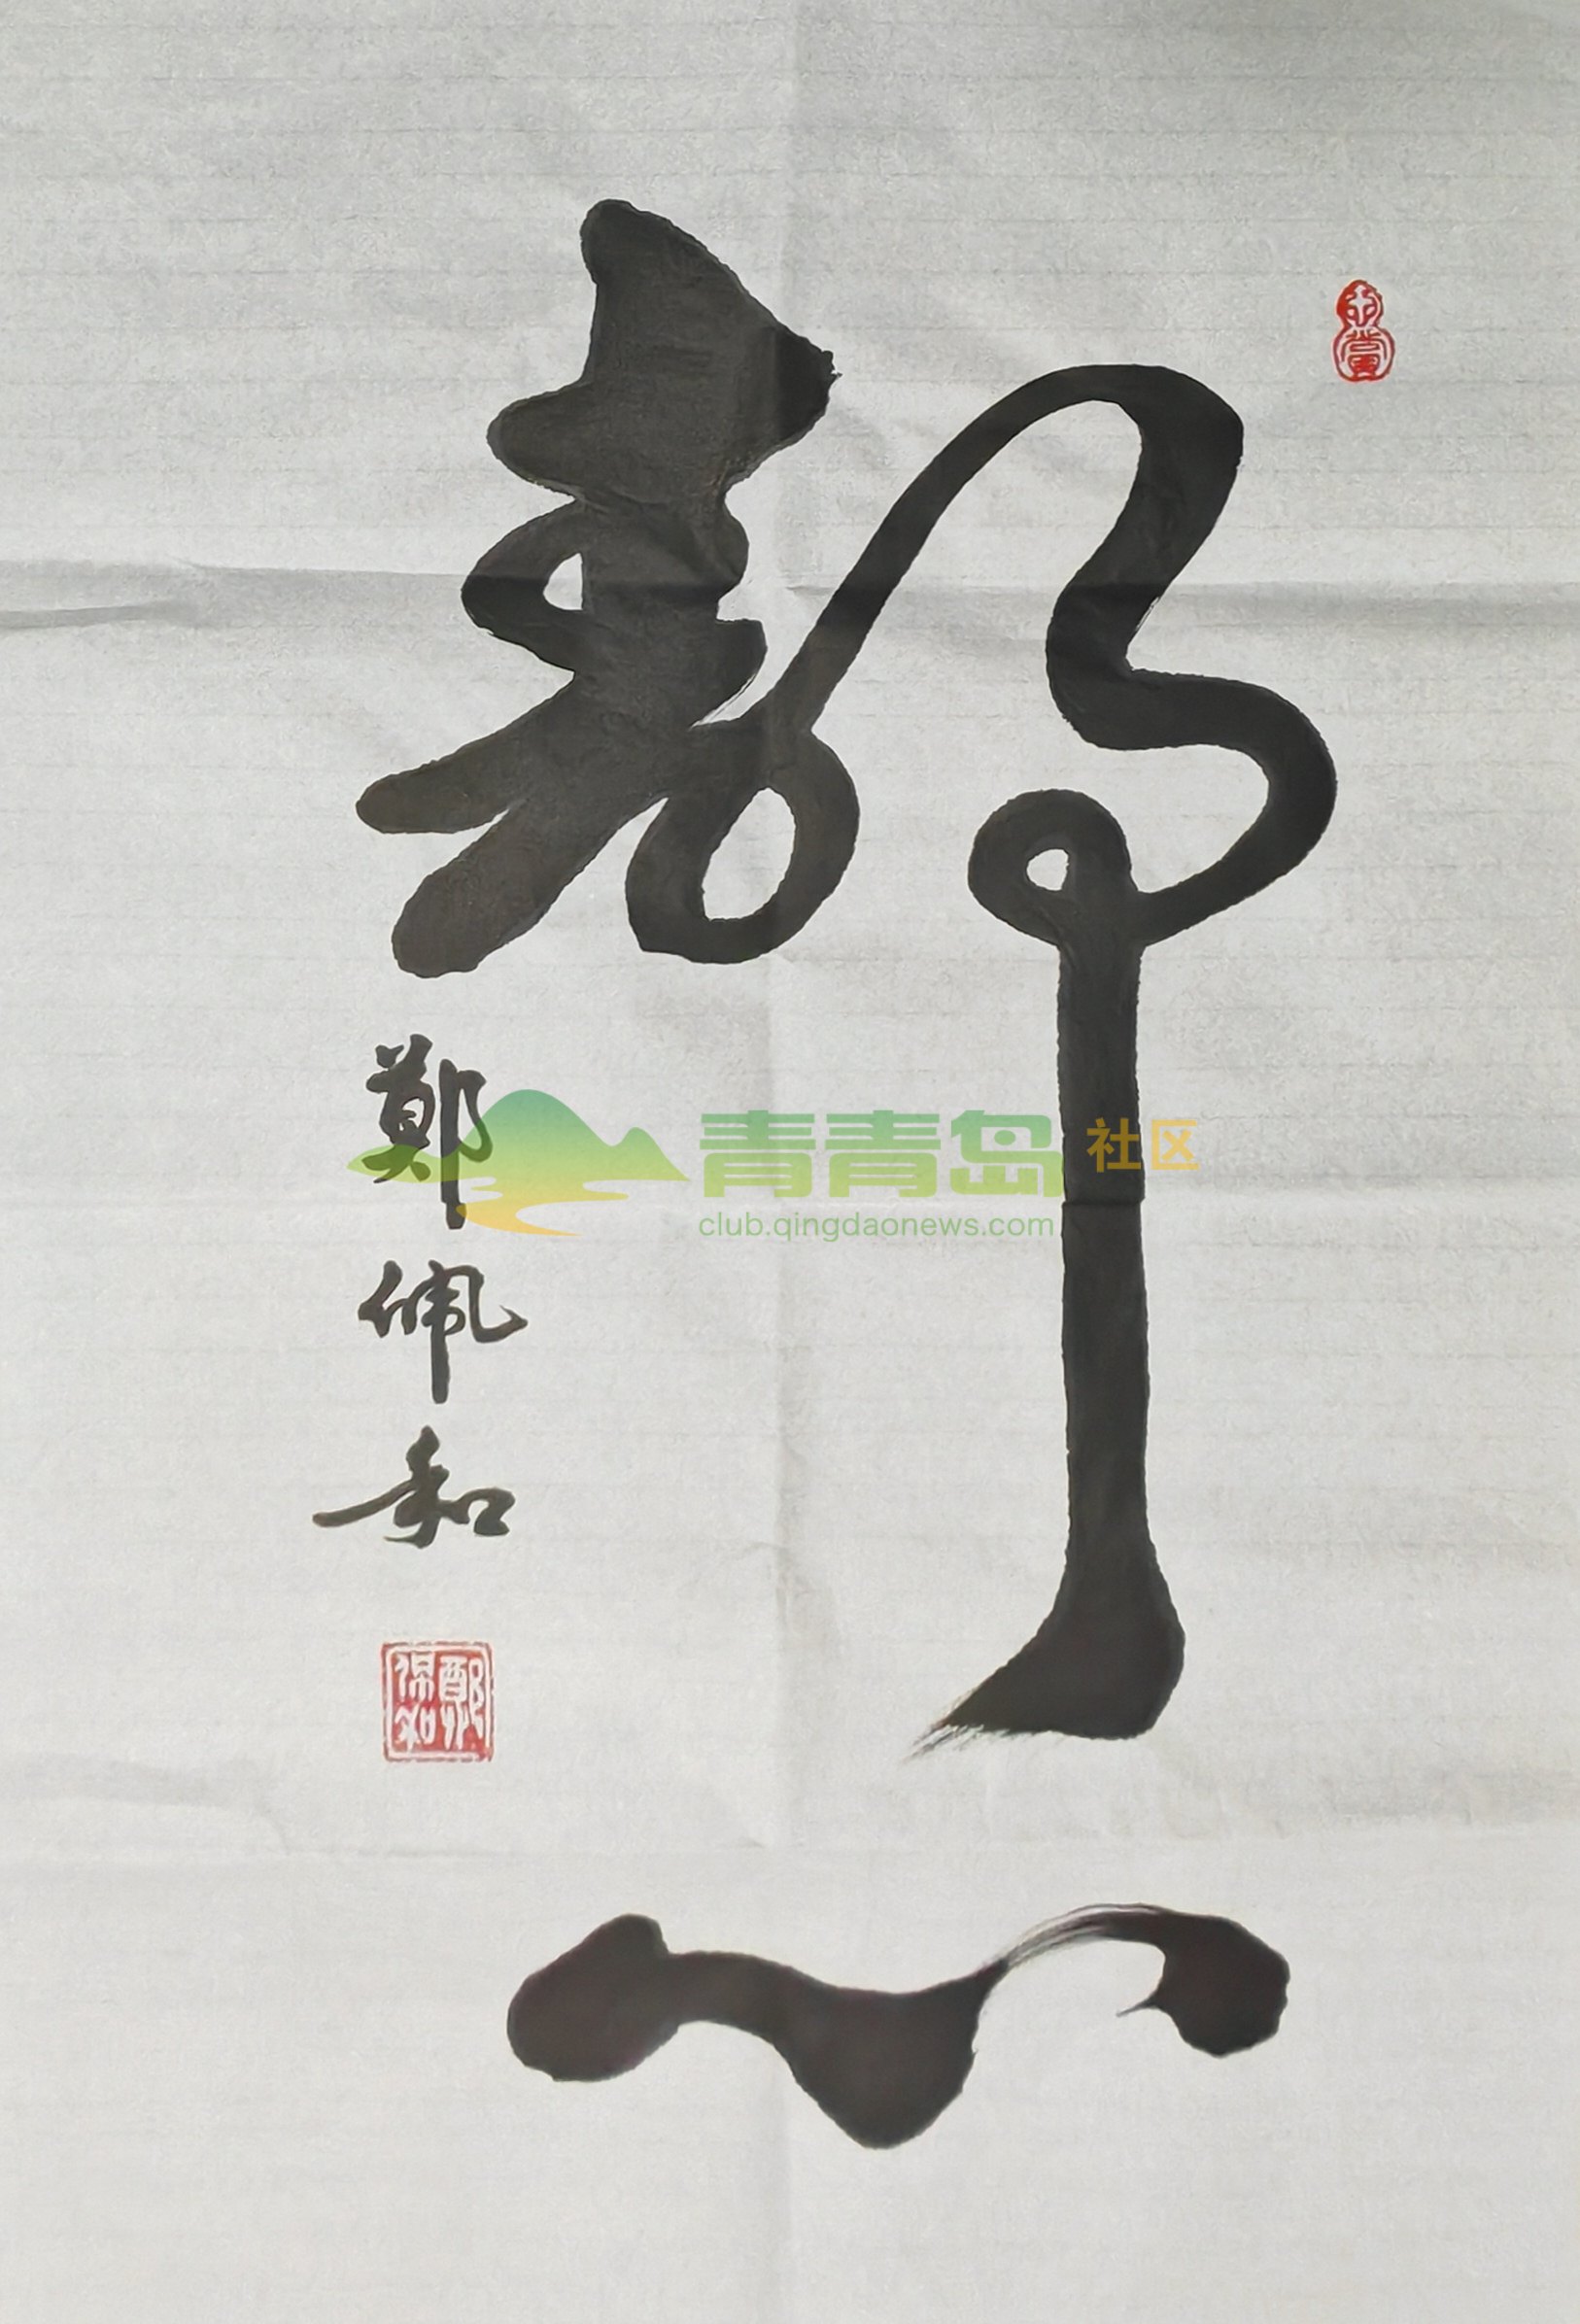 静心
鄭佩和
青青岛 社区
club.qingdaonews.com